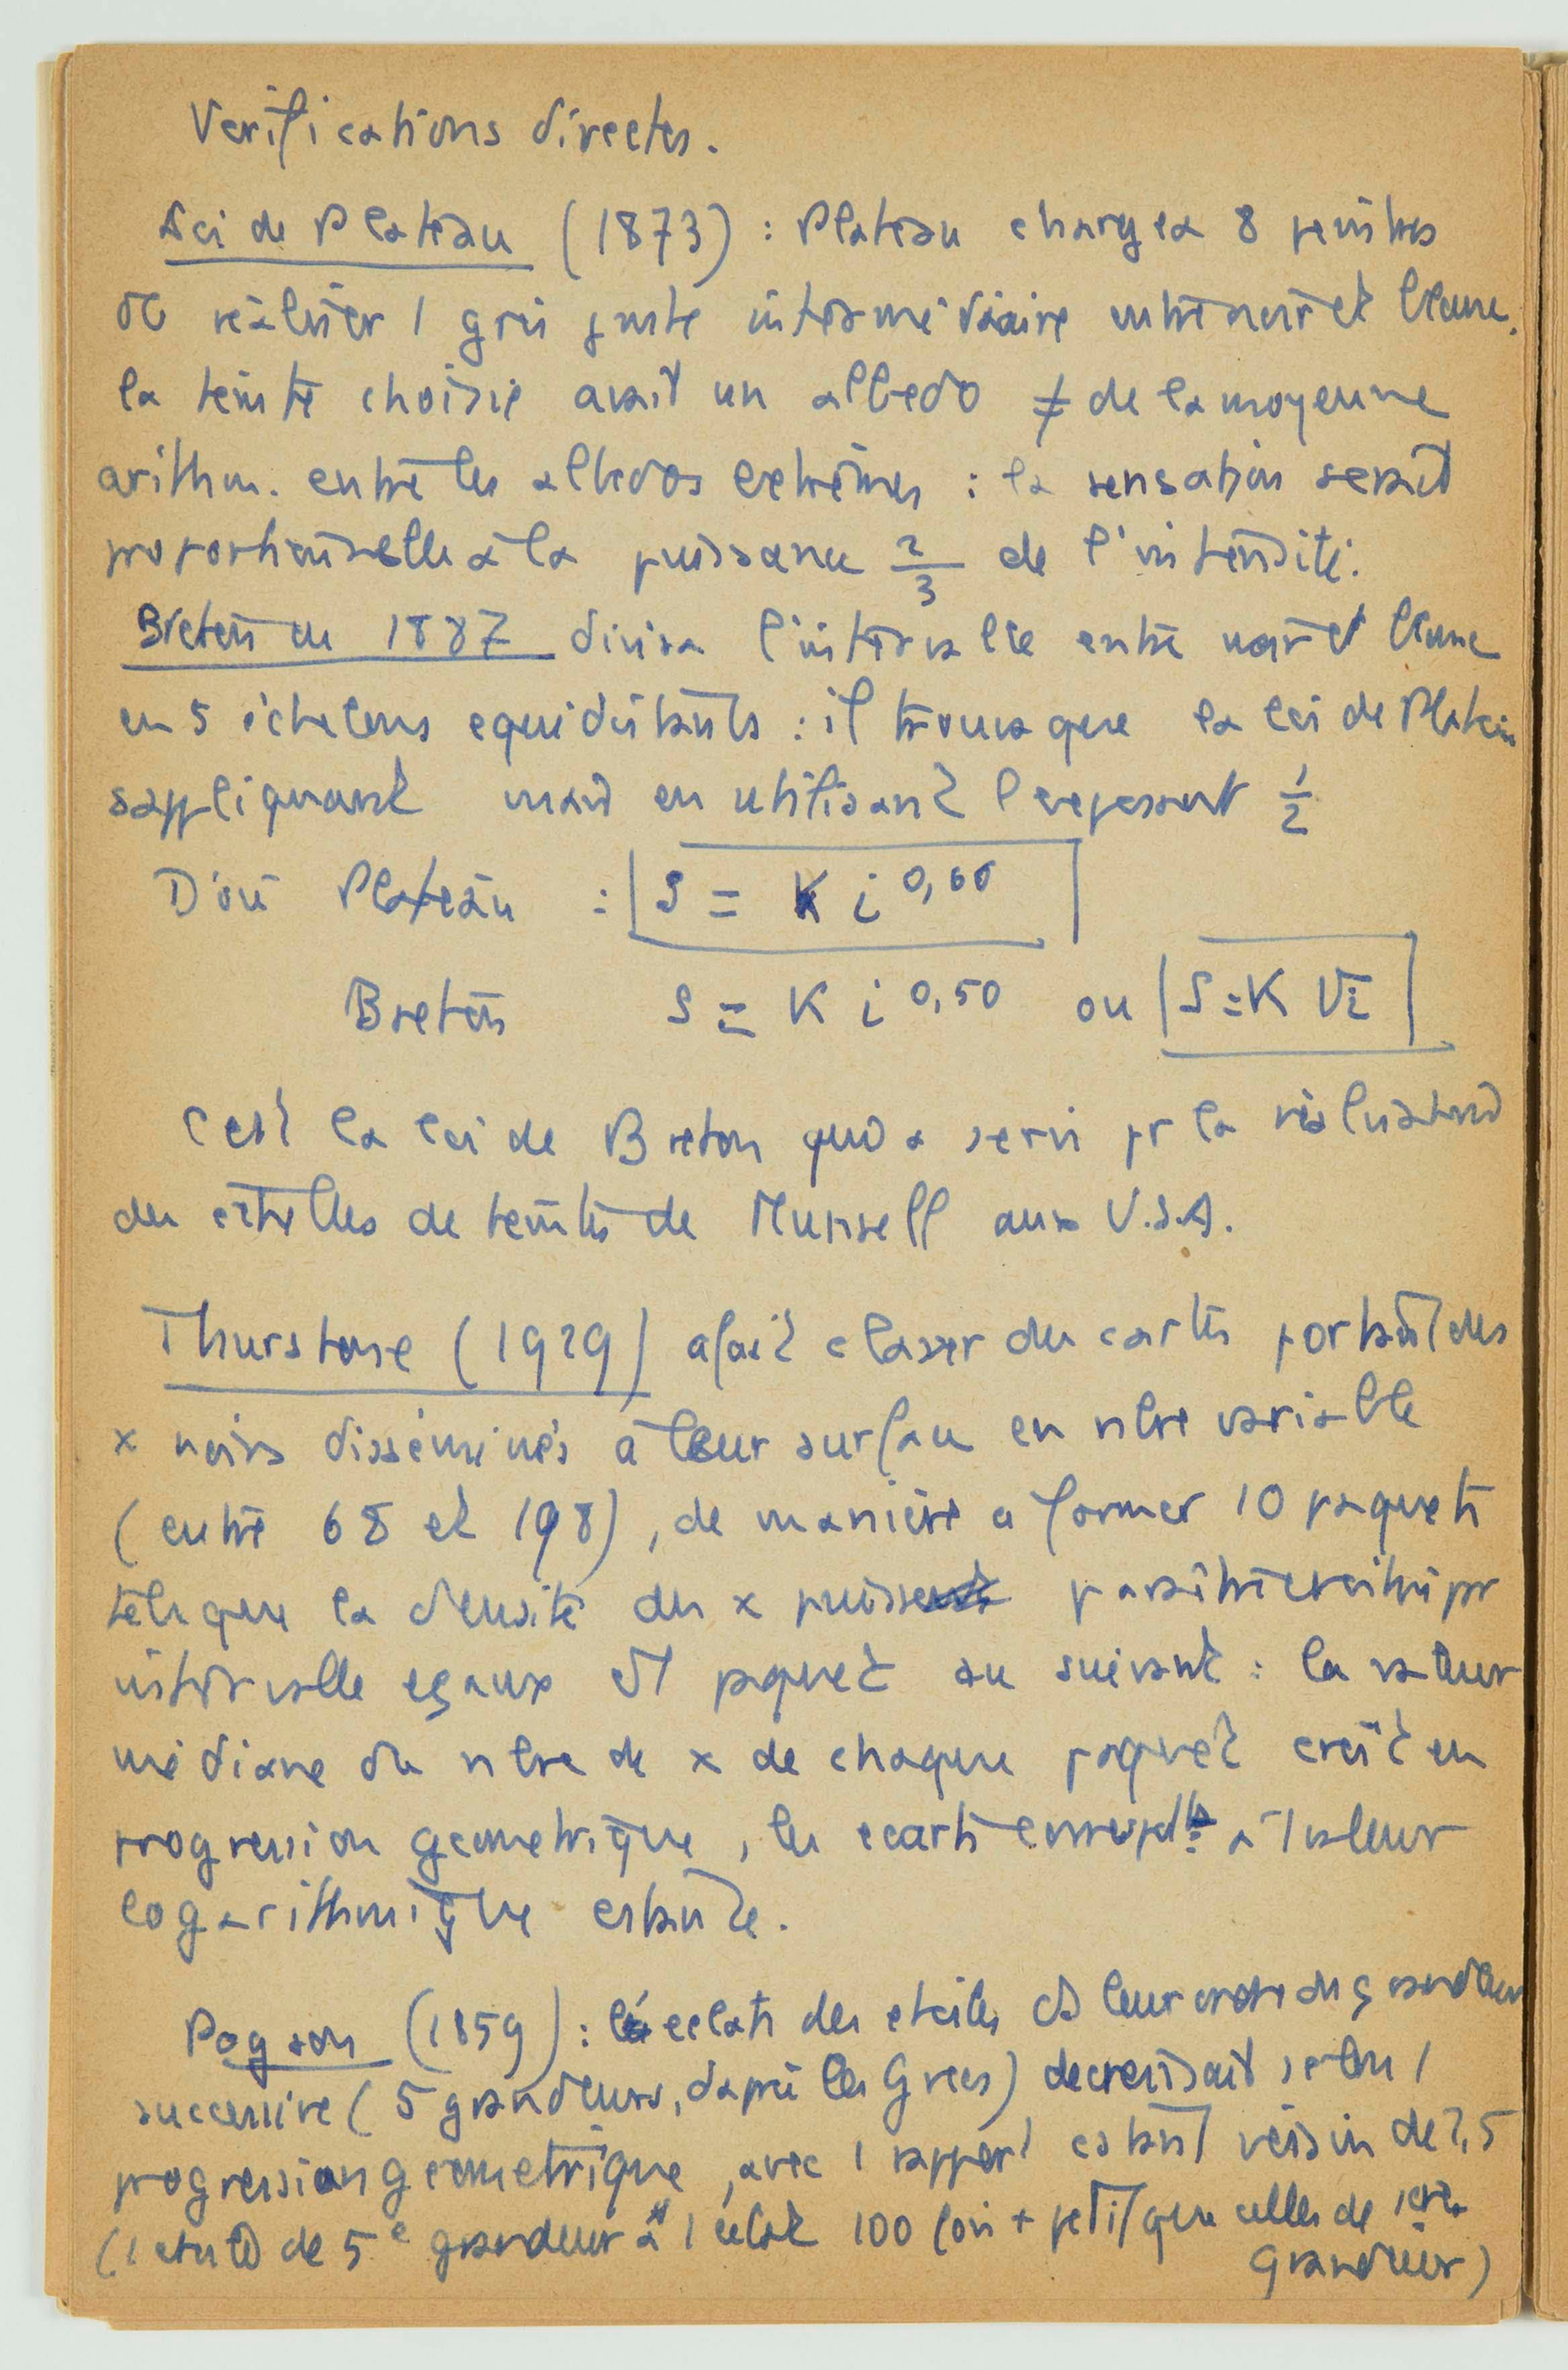 Verifications directes.
Loi de Plateau (1873) : Plateau chargea 8 peintres
de réaliser 1 gris juste intermédiaire entre noir et blanc.
la teinte choisie avait un albedo ≠ de la moyenne
arithm. entre les albedos extrêmes : la sensation serait
proportionnelle à la puissance 2/3 de l'intensité.
Breton en 1887 divisa l'intervalle entre noir et blanc
en 5 échelons equidistants : il trouva que la loi de Plateau
s'appliquant mais en utilisant l'exposant 1/2
D'où Plateau : S = K i^0,66
Breton S = K i^0,50 ou S = K √i
C'est la loi de Breton qui a servi pr la réalisation
des échelles de teintes de Munsell aux U.S.A.
Thurstone (1929) a fait classer des cartes portant des
x noirs disséminés à leur surface en nbre variable
(entre 68 et 198), de manière a former 10 paquets
tels que la densité des x puisse paraitre croitre pr
intervalle egaux d'1 paquet au suivant : la valeur
médiane du nbre de x de chaque paquet croît en
progression geometrique, les ecarts correspdts à 1 valeur
logarithmique cstante.
Pogson (1859) : les eclats des etoiles ds leur ordre de grandeur
successive (5 grandeurs, dapré les Grecs) decroissait selon 1
progression geometrique, avec 1 rapport cstant voisin de 2,5
(1 etoile de 5e grandeur a 1 eclat 100 fois + petit que celles de 1ere
grandeur)